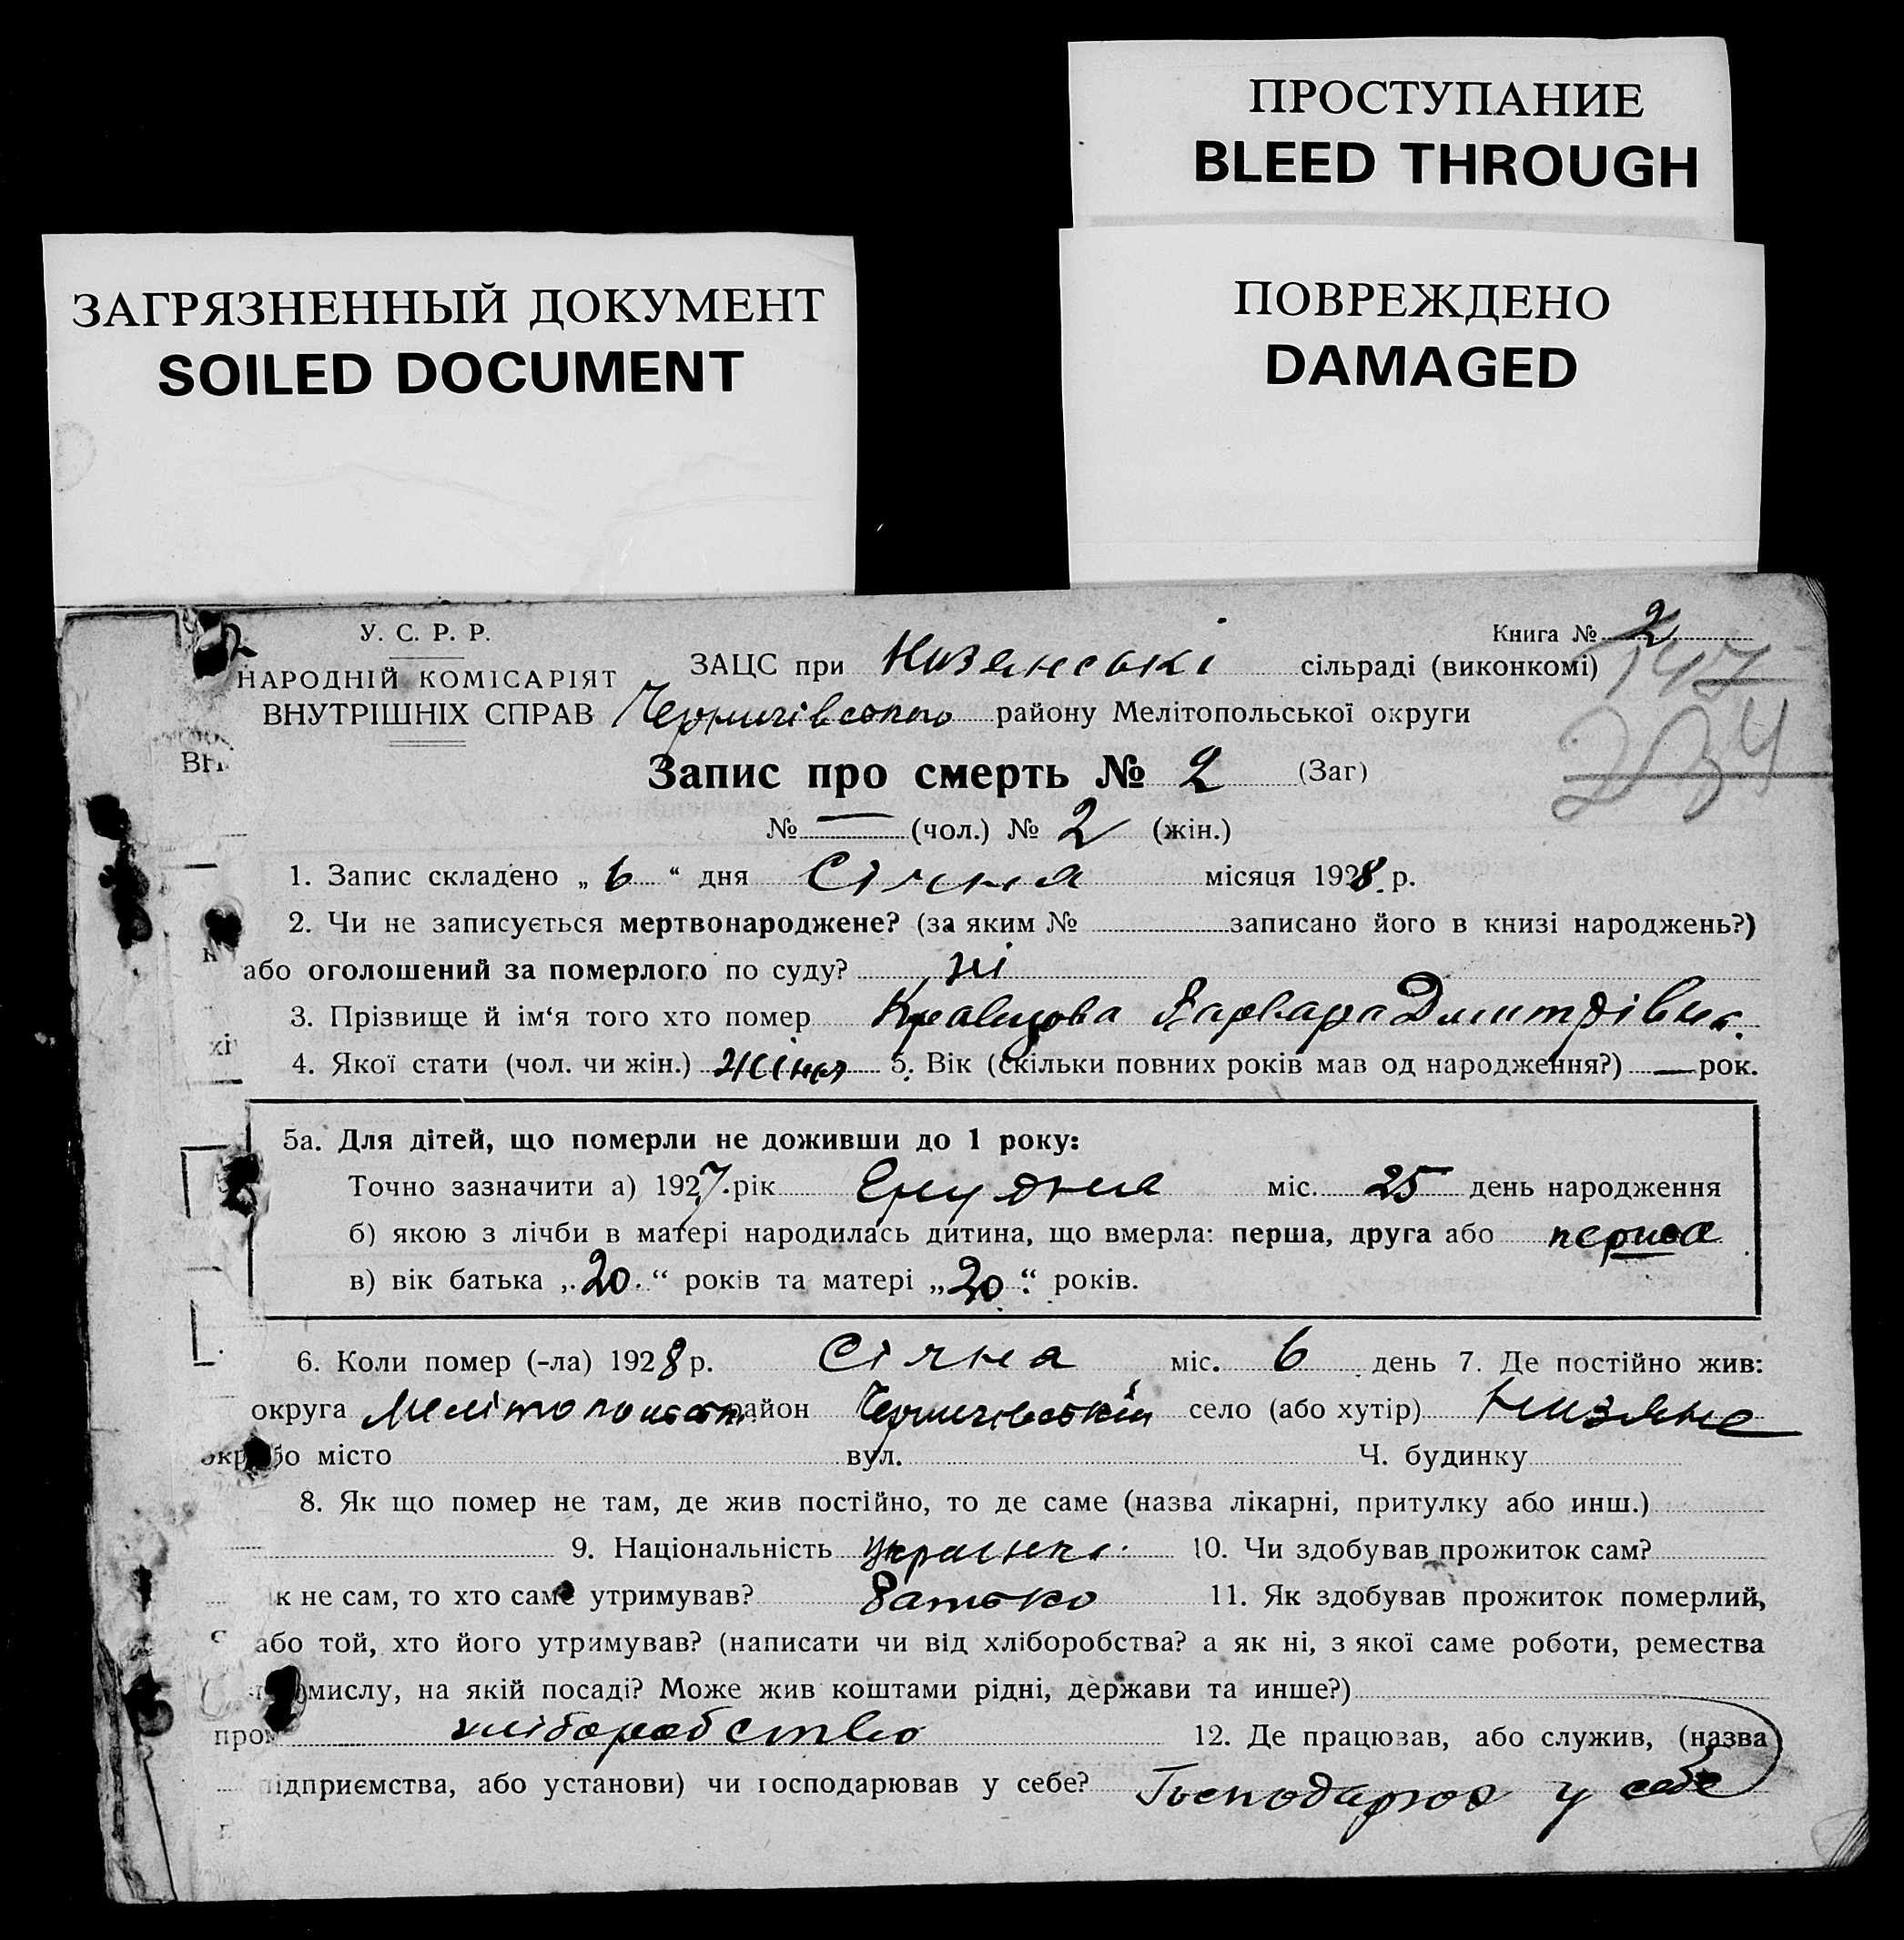 ПРОСТУПАНИЕ
BLEED THROUGH
ЗАГРЯЗНЕННЫЙ ДОКУМЕНТ
SOILED DOCUMENT
ПОВРЕЖДЕНО
DAMAGED
У. С. Р. Р.
НАРОДНІЙ КОМІСАРІЯТ
ВНУТРІШНІХ СПРАВ
Книга № 2
147
234
ЗАЦС при Низянські сільраді (виконкомі)
Чернигівського району Мелітопольської округи
Запис про смерть № 2 (Заг)
№ — (чол.) № 2 (жін.)
1. Запис складено „ 6 “ дня Січня місяця 1928 р.
2. Чи не записується мертвонароджене? (за яким № записано його в книзі народжень?)
або оголошений за померлого по суду? ні
3. Прізвище й ім‘я того хто помер Кравцова Варвара Дмитрівна.
4. Якої стати (чол. чи жін.) жіноч 5. Вік (скільки повних років мав од народження?) — рок.
5а. Для дітей, що померли не доживши до 1 року:
Точно зазначити а) 1927 рік Грудня міс. 25 день народження
б) якою з лічби в матері народилась дитина, що вмерла: перша, друга або перша
в) вік батька „ 20 “ років та матері „ 20 “ років.
6. Коли помер (-ла) 1928 р. Січня міс. 6 день 7. Де постійно жив:
округа Мелітопольськ. район Чернигівський село (або хутір) Низяне
або місто вул. Ч. будинку
8. Як що помер не там, де жив постійно, то де саме (назва лікарні, притулку або инш.)
9. Національність українка 10. Чи здобував прожиток сам?
к не сам, то хто саме утримував? батько 11. Як здобував прожиток померлий,
або той, хто його утримував? (написати чи від хліборобства? а як ні, з якої саме роботи, ремества
мислу, на якій посаді? Може жив коштами рідні, держави та инше?)
хліборобство 12. Де працював, або служив, (назва
підприємства, або установи) чи господарював у себе? Господарюв у себе